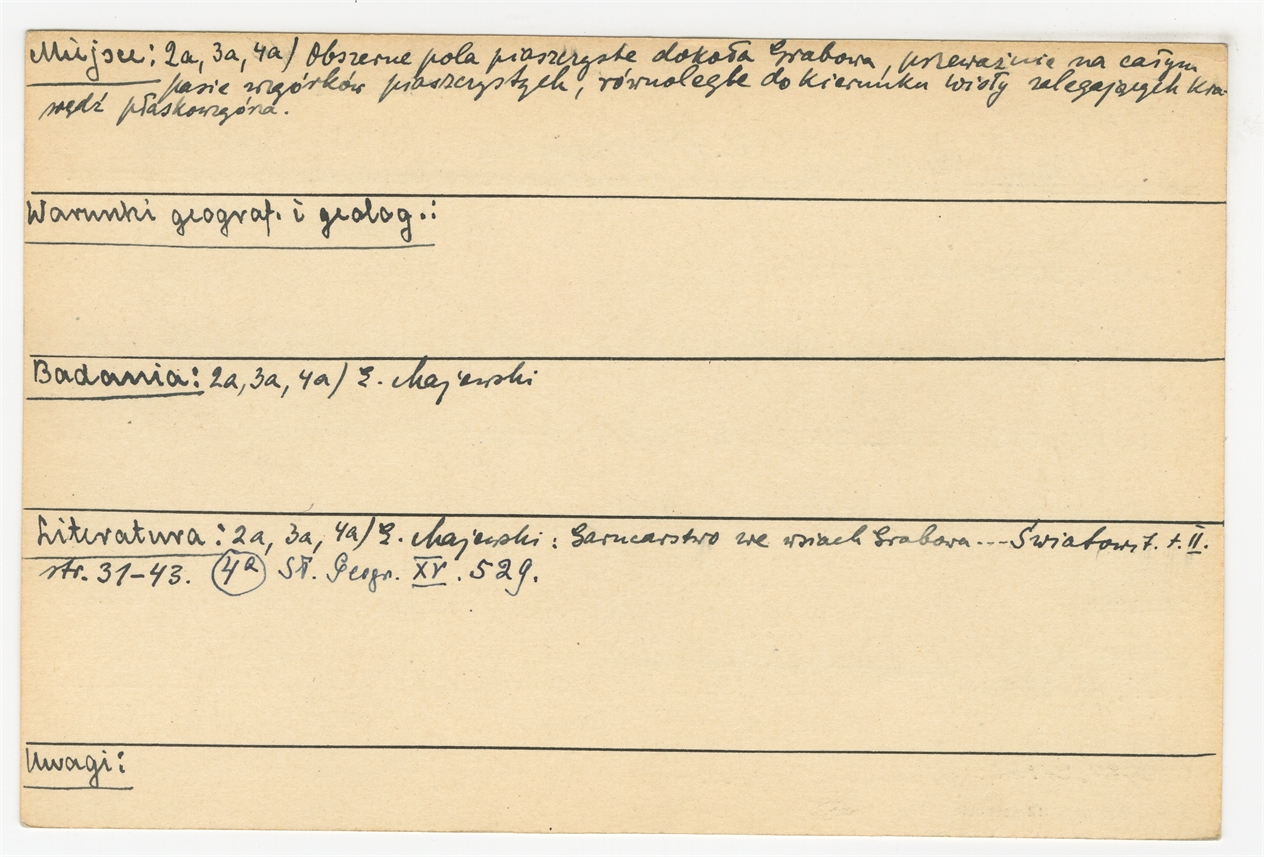 Miejsce: 2a, 3a, 4a) Obszerne pola piaszczyste dokoła Grabowa, przeważnie na całym
pasie wzgórków piaszczystych, równoległe do kierunku Wisły zalegających kra-
wędź płaskowzgórza.
Warunki geograf. i geolog.:
Badania: 2a, 3a, 4a) E. Majewski
Literatura: 2a, 3a, 4a) E. Majewski: Garncarstwo we wsiach Grabowa --- Światowit. t. II.
str. 31-43. 4a Sł. Geogr. XV. 529.
Uwagi: